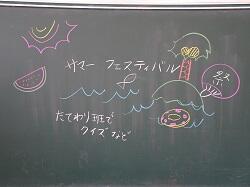 サマー フェスティバル
祭
たてわり班で
クイズなど